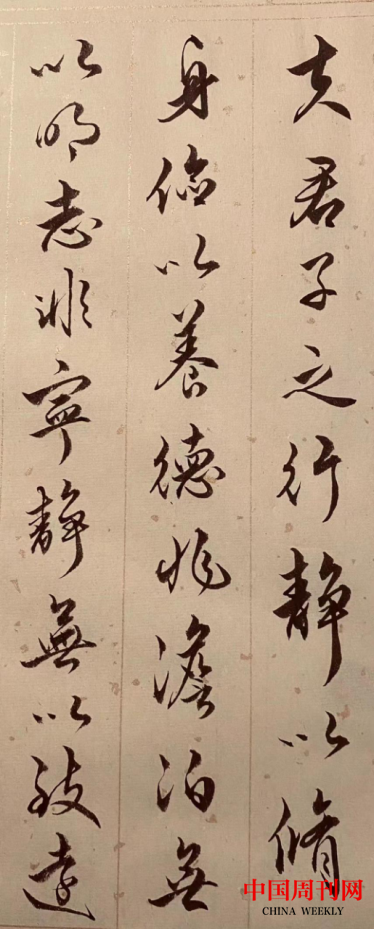 夫君子之行静以脩
身儉以養德非澹泊無
以明志非寧静無以致遠
中国周刊网
CHINA WEEKLY